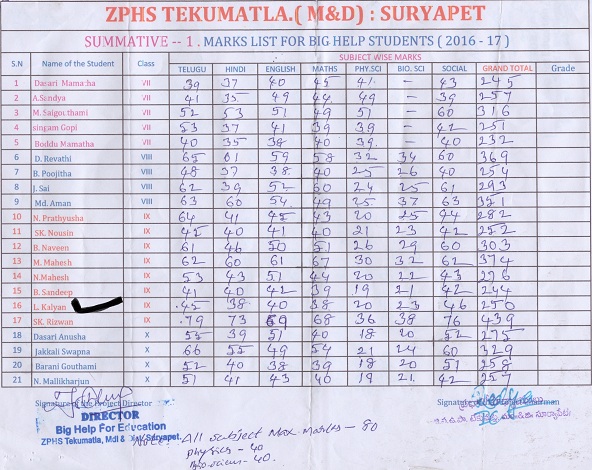 ZPHS TEKUMATLA.( M&D) : SURYAPET
SUMMATIVE -- 1 . MARKS LIST FOR BIG HELP STUDENTS ( 2016 - 17 )
S.N Name of the Student Class SUBJECT WISE MARKS GRAND TOTAL Grade
TELUGU HINDI ENGLISH MATHS PHY.SCI BIO. SCI SOCIAL
1 Dasari Mamatha VII 39 37 40 45 41 - 43 245
2 A.Sandya VII 41 35 49 44 49 - 39 257
3 M. Saigouthami VII 52 53 51 49 51 - 60 316
4 singam Gopi VII 53 37 41 39 39 - 42 251
5 Boddu Mamatha VII 40 35 38 40 39 - 40 232
6 D. Revathi VIII 65 61 59 58 32 34 60 369
7 B. Poojitha VIII 48 37 38 40 25 26 40 254
8 J. Sai VIII 62 39 52 60 24 25 61 293
9 Md. Aman VIII 63 60 54 49 25 37 63 351
10 N. Prathyusha IX 64 41 45 43 20 25 44 282
11 SK. Nousin IX 45 40 41 40 21 23 42 252
12 B. Naveen IX 61 46 50 51 26 29 60 303
13 M. Mahesh IX 62 60 61 67 30 32 62 374
14 N.Mahesh IX 53 43 51 44 20 22 43 276
15 B. Sandeep IX 41 40 42 39 19 21 42 244
16 L. Kalyan IX 45 38 40 38 20 23 46 250
17 SK. Rizwan IX 79 73 69 68 36 38 76 439
18 Dasari Anusha X 55 39 51 40 18 20 52 275
19 Jakkali Swapna X 66 55 49 54 21 24 60 329
20 Barani Gouthami X 52 40 38 39 18 20 51 258
21 N. Mallikharjun X 51 41 43 40 19 21 42 257
Signature of the Project Director
DIRECTOR
Big Help For Education
ZPHS Tekumatla, Mdl & Suryapet.
Note: All subject Max. Marks - 80
Physics - 40
Bio science - 40.